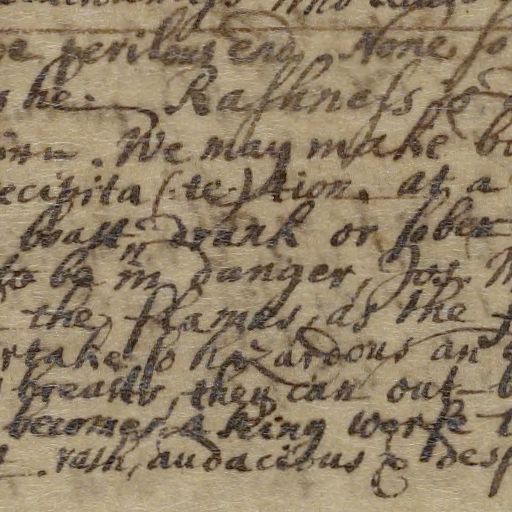 perilous end. None so
he. Rashness &
. We may make
ecipita(·te·)tion. at a
boast drunk or sober
to be in danger, Jos.
the flames, as the
rtake so hazardous an
breasts, they can out-b
becomes a King worse t
. rash, audacious & desp